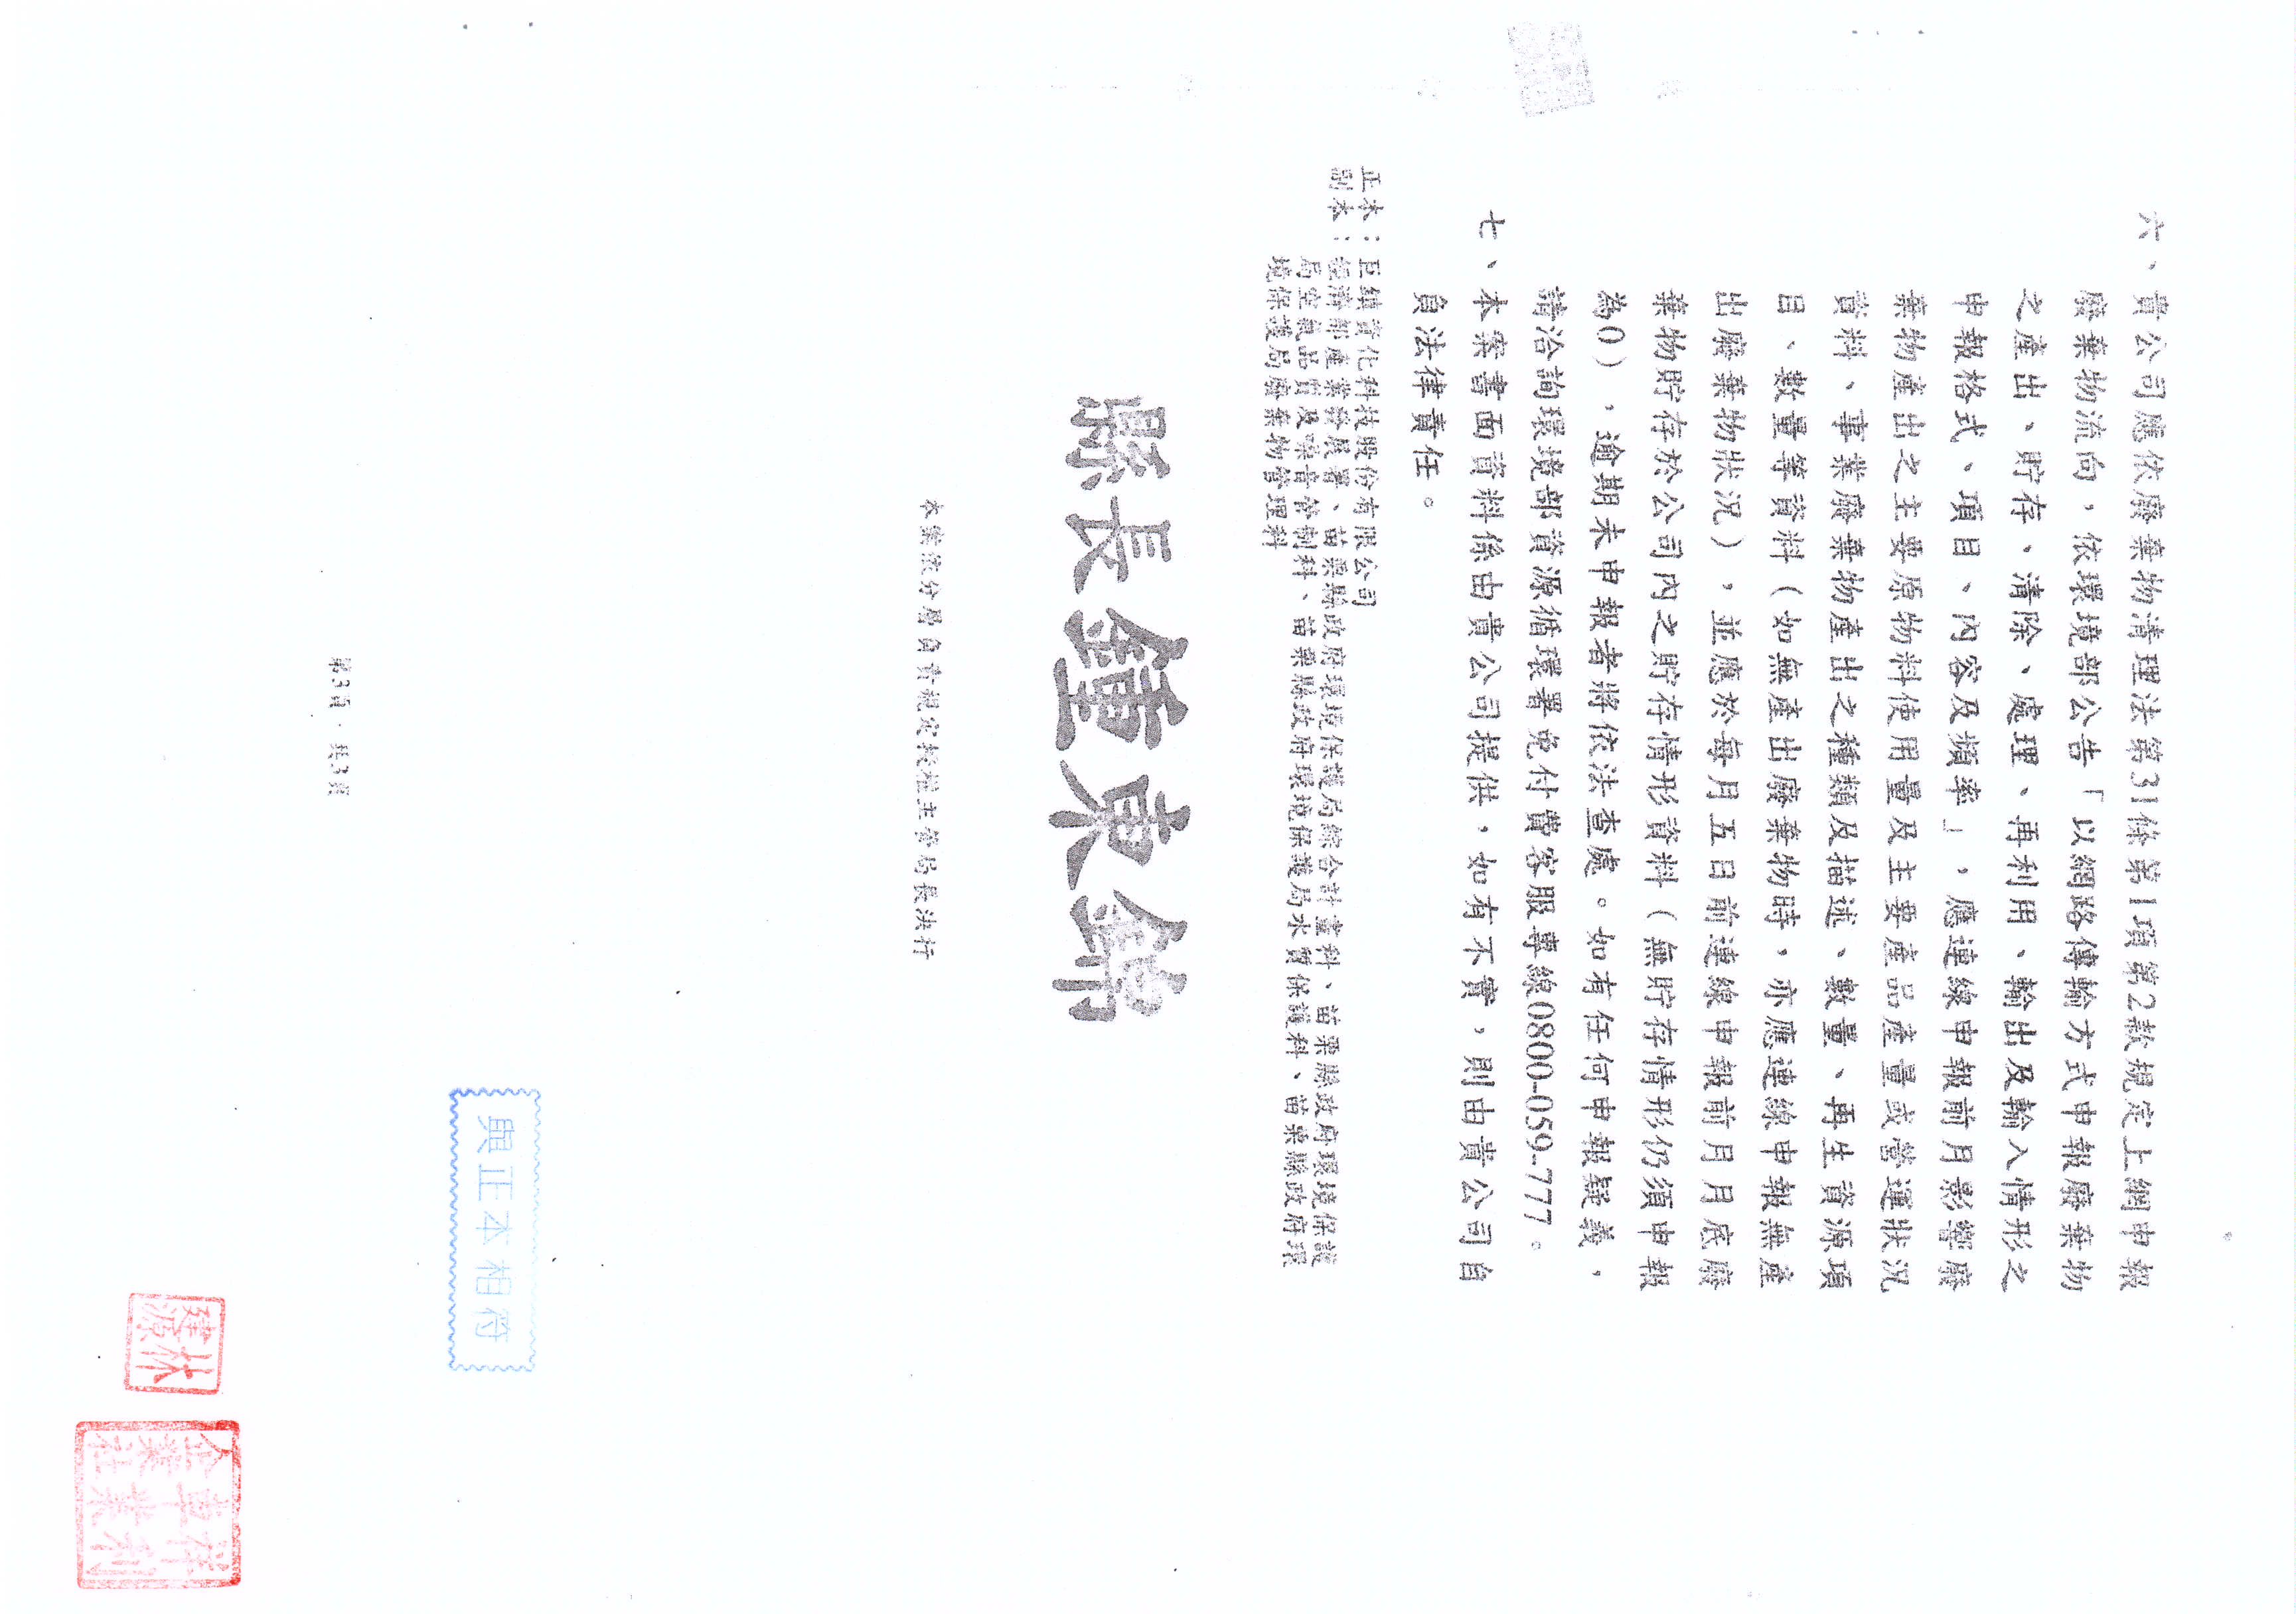 六、貴公司應依廢棄物清理法第31條第1項第2款規定上網申報
廢棄物流向，依環境部公告「以網路傳輸方式申報廢棄物
之產出、貯存、清除、處理、再利用、輸出及輸入情形之
申報格式、項目、內容及頻率」，應連線申報前月影響廢
棄物產出之主要原物料使用量及主要產品產量或營運狀況
資料、事業廢棄物產出之種類及描述、數量、再生資源項
目、數量等資料（如無產出廢棄物時，亦應連線申報無產
出廢棄物狀況），並應於每月五日前連線申報前月月底廢
棄物貯存於公司內之貯存情形資料（無貯存情形仍須申報
為0），逾期未申報者將依法查處。如有任何申報疑義，
請洽詢環境部資源循環署免付費客服專線0800-059-777。
七、本案書面資料係由貴公司提供，如有不實，則由貴公司自
負法律責任。
正本：巨鎮資化科技股份有限公司
副本：經濟部產業發展署、苗栗縣政府環境保護局綜合計畫科、苗栗縣政府環境保護
局空氣品質及噪音管制科、苗栗縣政府環境保護局水質保護科、苗栗縣政府環
境保護局廢棄物管理科
縣長鍾東錦
本案依分層負責規定授權主管局長決行
第3頁，共3頁
與正本相符
林
源
企業社